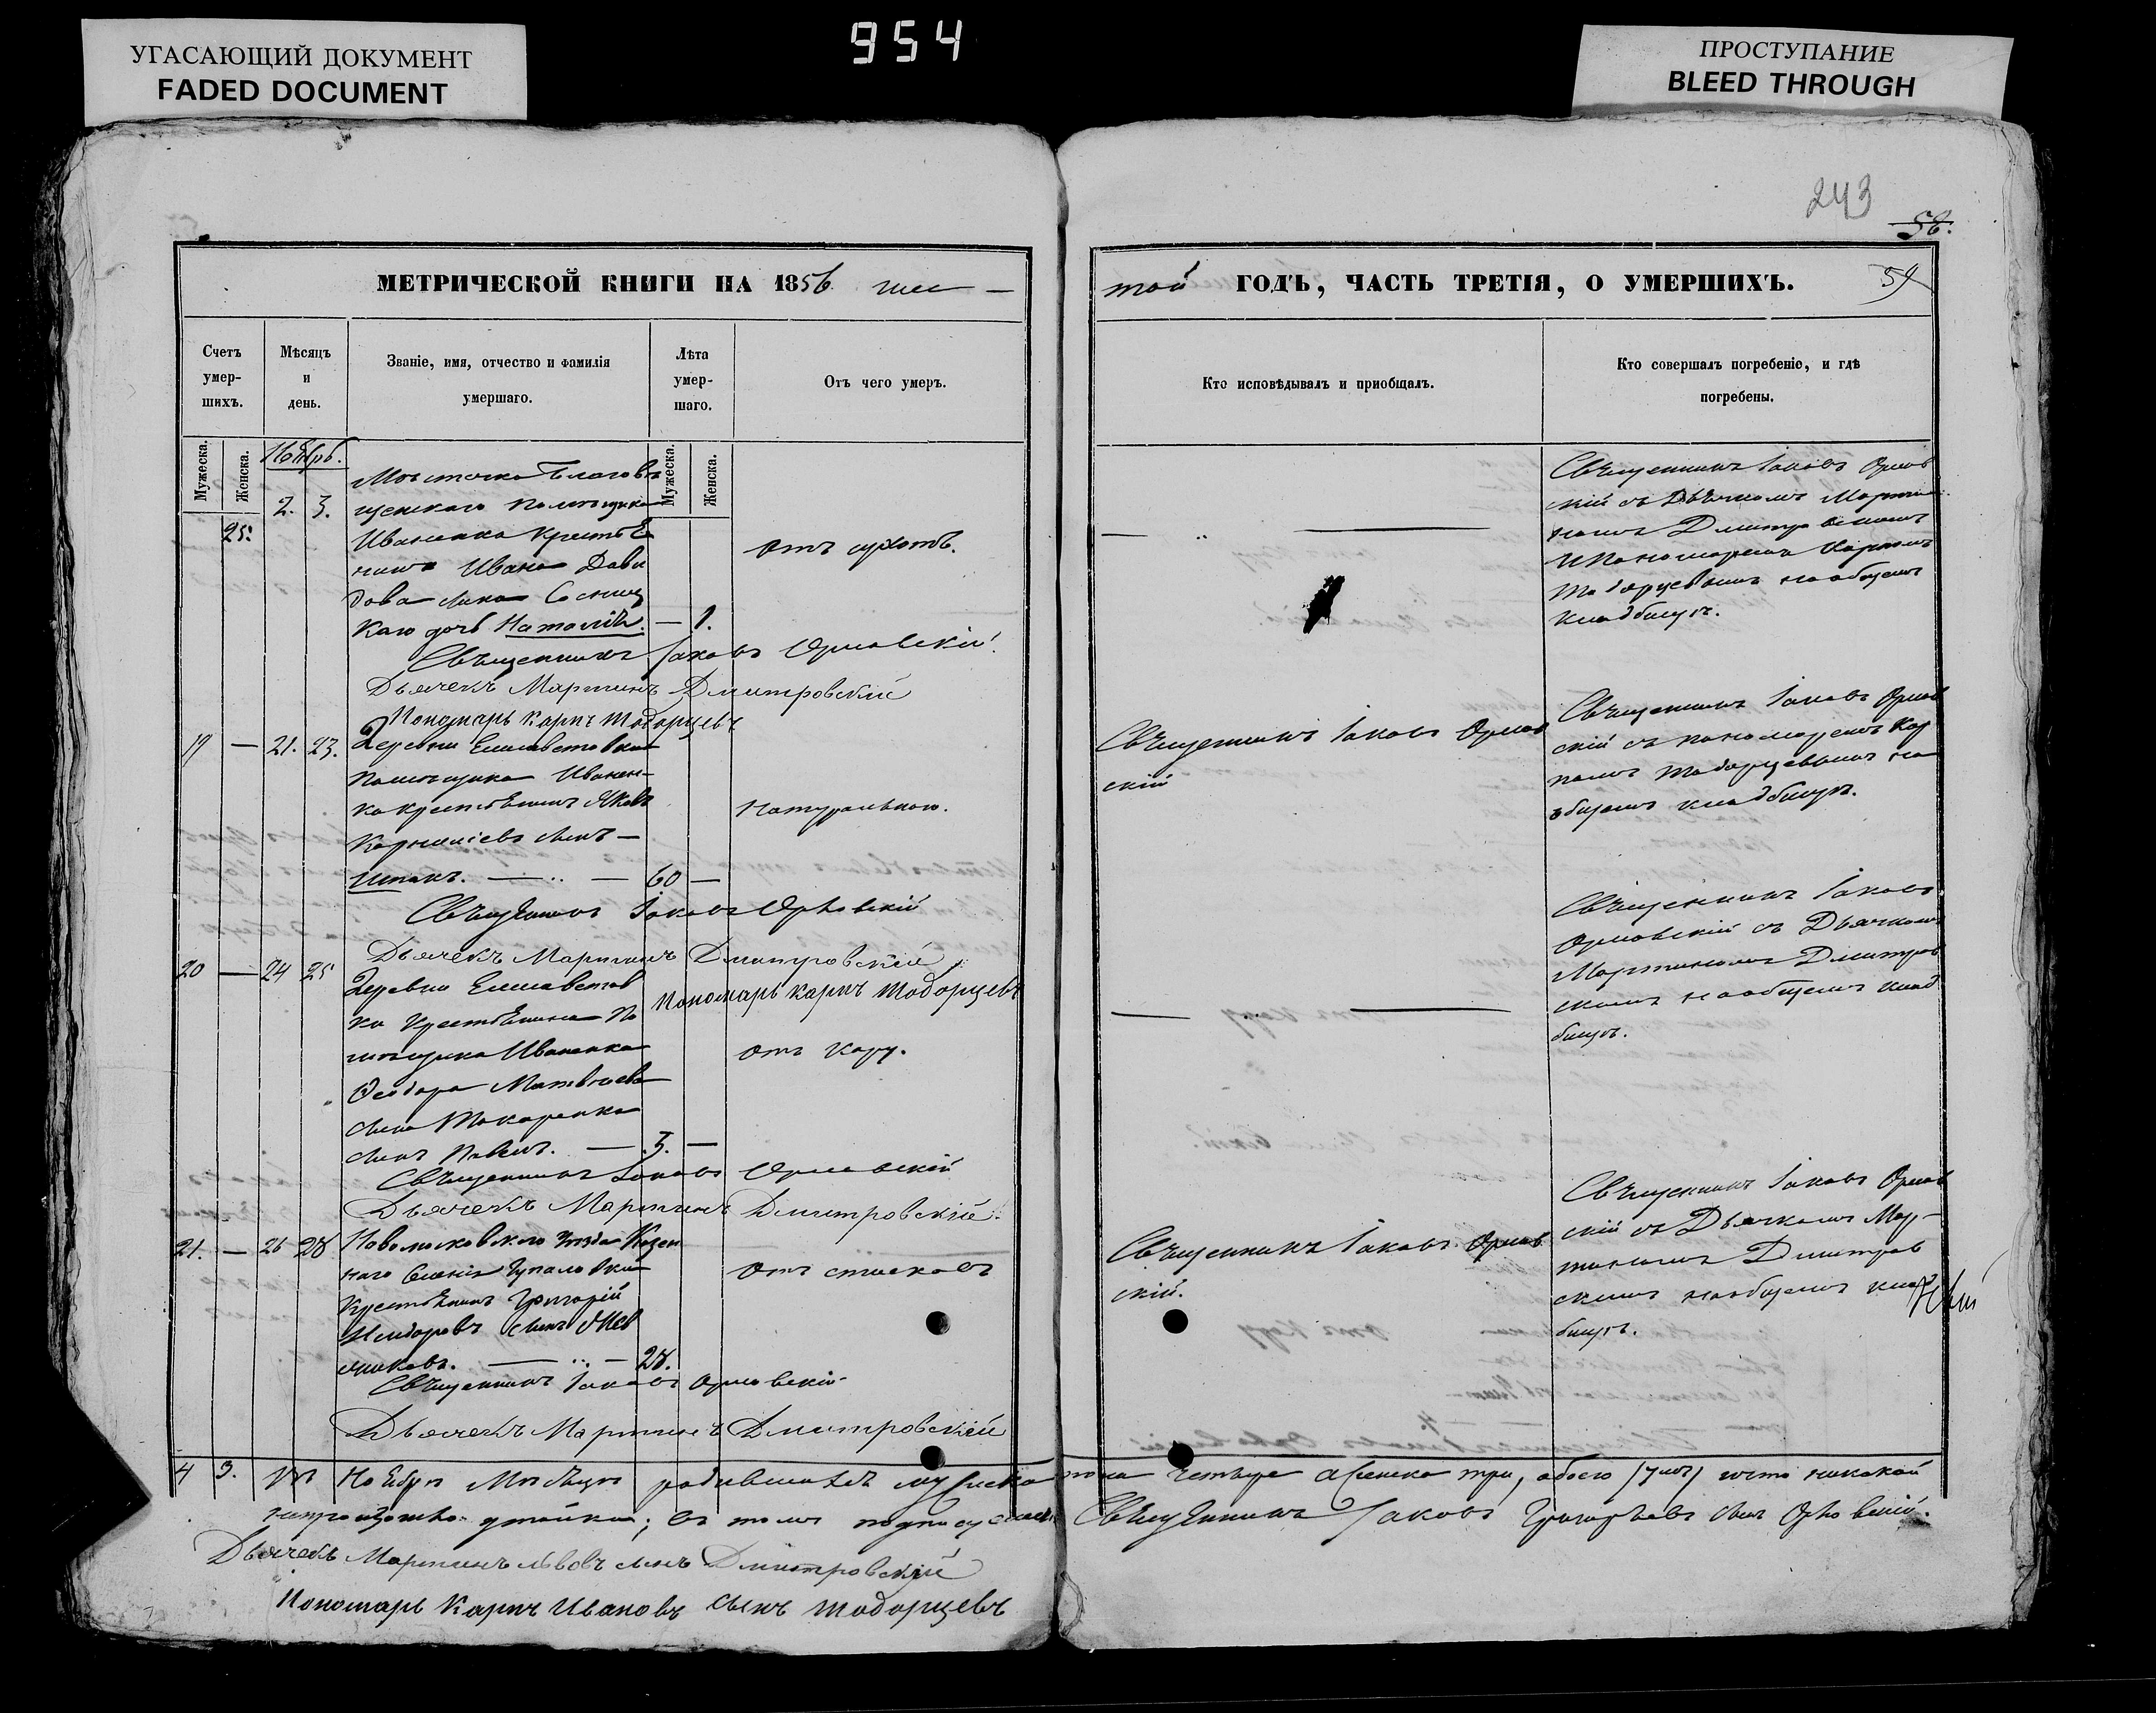 УГАСАЮЩИЙ ДОКУМЕНТ
FADED DOCUMENT
954
ПРОСТУПАНИЕ
BLEED THROUGH
243
58.
МЕТРИЧЕСКОЙ КНИГИ НА 1856 шес —
той ГОДЪ, ЧАСТЬ ТРЕТІЯ, О УМЕРШИХЪ.
Счетъ умер-шихъ.
Мѣсяцъ и день.
Званіе, имя, отчество и фамилія умершаго.
Лѣта умер-шаго.
Отъ чего умеръ.
Кто исповѣдывалъ и пріобщалъ.
Кто совершалъ погребеніе, и гдѣ погребены.
Мужеска.
Женска.
Мужеска.
Женска.
25.
2. 3.
Мѣстечка Благовѣ
щенскаго помѣщика
Иваненка крестья
нина Ивана Дави
дова сына
каго дочь Наталія. — 1.
отъ сухотъ.
Священникъ Іаковъ Орлов
скій съ Дьячкомъ Марти
номъ Дмитровскимъ
и Пономаремъ Карпомъ
Тодорцевымъ на общемъ
кладбищѣ.
Священникъ Іаковъ Орловскій.
Дьячекъ Мартинъ Дмитровскій
Пономарь Карпъ Тодорцевъ
19 — 21. 23.
Деревни Елисаветовки
помѣщика Иванен-
ка крестьянинъ Яковъ
Корниліевъ сынъ —
Шпакъ. — 60 —
Натуральною.
Священникъ Іаковъ Орлов
скій
Священникъ Іаковъ Орлов
скій съ пономаремъ Кар
помъ Тодорцевымъ на
общемъ кладбищѣ.
Священникъ Іаковъ Орловскій
Дьячекъ Мартинъ Дмитровскій
Пономарь Карпъ Тодорцевъ
20 — 24 25
Деревни Елисаветов
ки крестьянина по
мѣщика Иваненка
Ѳеодора Матвѣева
сына Токаренка
сынъ Павелъ. — 3. —
отъ кору.
Священникъ Іаковъ
Орловскій съ Дьячкомъ
Мартиномъ Дмитров
скимъ на общемъ клад
бищѣ.
Священникъ Іаковъ Орловскій
Дьячекъ Мартинъ Дмитровскій.
21. — 26 28
Новомосковскаго уѣзда Казен
наго Селенія Гупаловки
Крестьянинъ Григорій
сынъ
— 28.
Священникъ Іаковъ Орлов
скій.
Священникъ Іаковъ Орлов
скій съ Дьячкомъ Мар-
тиномъ Дмитров
скимъ на общемъ клад
бищѣ.
Священникъ Іаковъ Орловскій
Дьячекъ Мартинъ Дмитровскій
4 3. Въ Ноябрѣ Мѣсяцѣ родившихся мужеска пола четыре а женска три, обоего /7мь/ что никакой
утайки; въ томъ подписуемся Священникъ Іаковъ Григорьевъ сынъ Орловскій.
Дьячекъ Мартинъ Львовъ сынъ Дмитровскій
Пономарь Карпъ Ивановъ сынъ Тодорцевъ